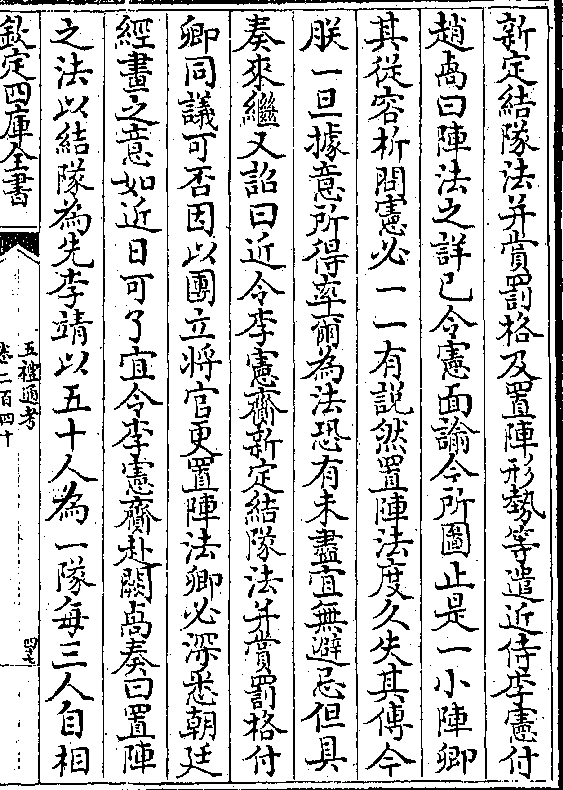 新定結隊法并賞罰格及置陣形勢等遣近侍李憲付
趙卨曰陣法之詳已令憲面諭今所圖止是一小陣卿
其從容析問憲必一一有說然置陣法度久失其傳今
朕一旦據意所得率爾為法恐有未盡宜無避忌但具
奏來繼又詔曰近令李憲齎新定結隊法并賞罰格付
卿同議可否因以團立將官更置陣法卿必深悉朝廷
經畫之意如近日可了宜令李憲齎赴闕卨奏曰置陣
之法以結隊為先李靖以五十人為一隊每三人自相
欽定四庫全書
五禮通考
卷二百四十